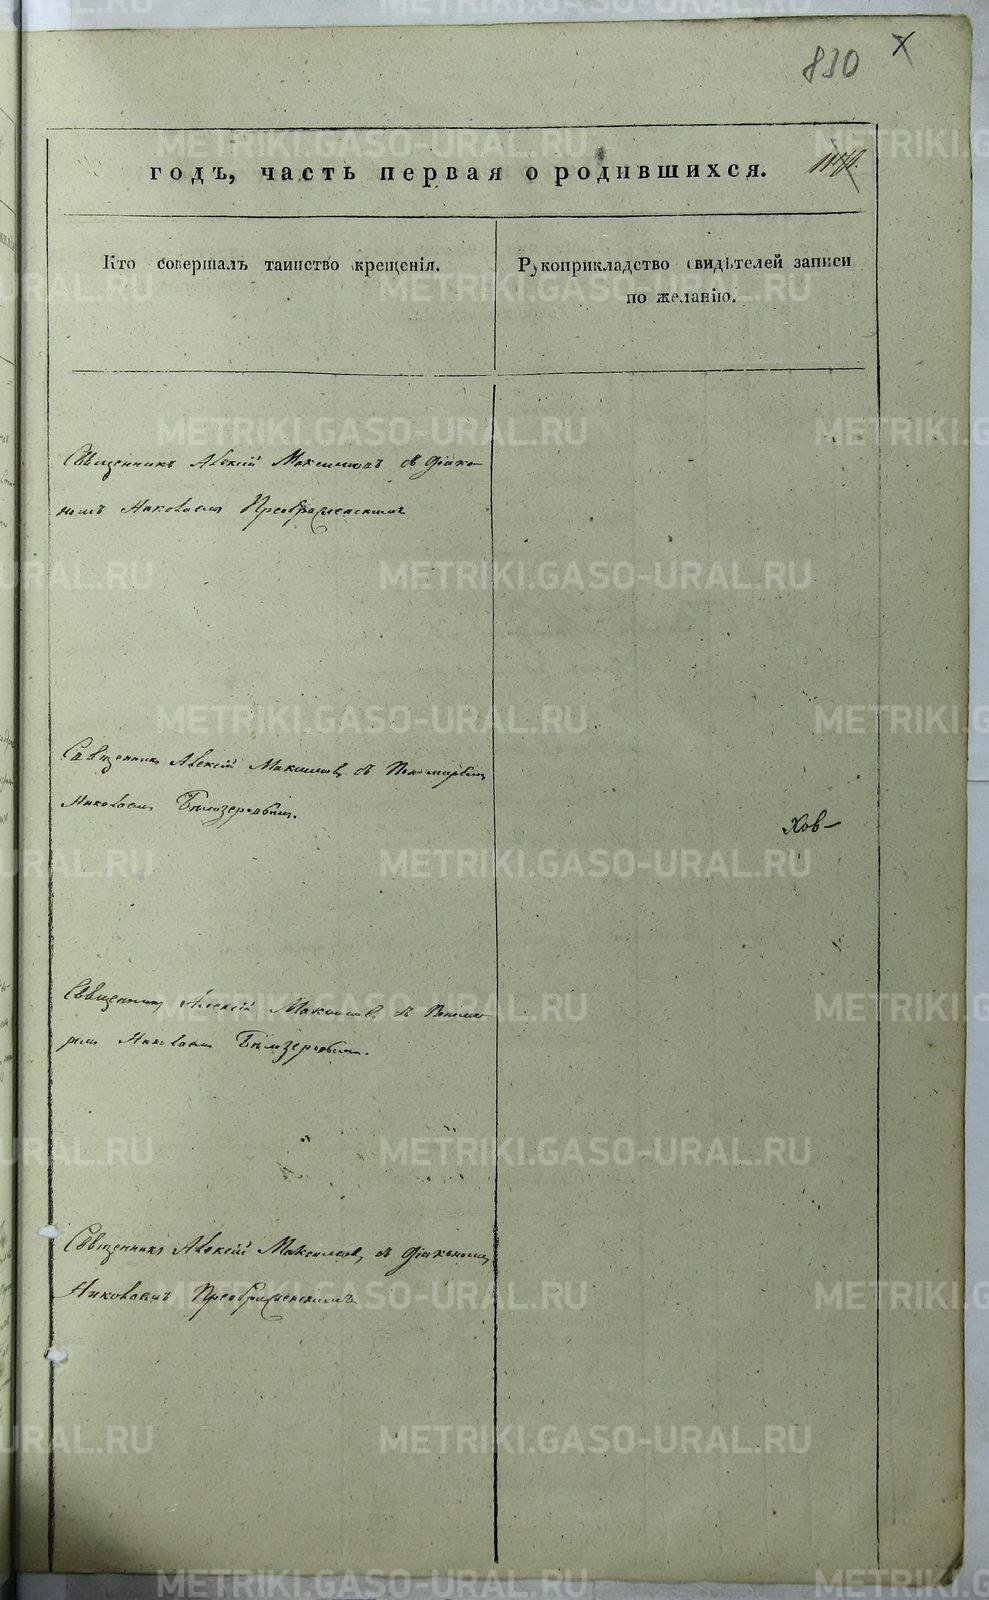 830
годъ, часть первая о родившихся.
Кто совершалъ таинство крещенія.
Рукоприкладство свидѣтелей записи
по желанію.
Священникъ Алексій Максимовъ съ Діако-
номъ Николаемъ Преображенскимъ
Священникъ Алексій Максимовъ съ Пономаремъ
Николаемъ Бѣлозеровымъ.
Хов-
Священникъ Алексій Максимовъ съ Понома-
ремъ Николаемъ Бѣлозеровымъ.
Священникъ Алексій Максимовъ съ Діакономъ
Николаемъ Преображенскимъ
METRIKI.GASO-URAL.RU